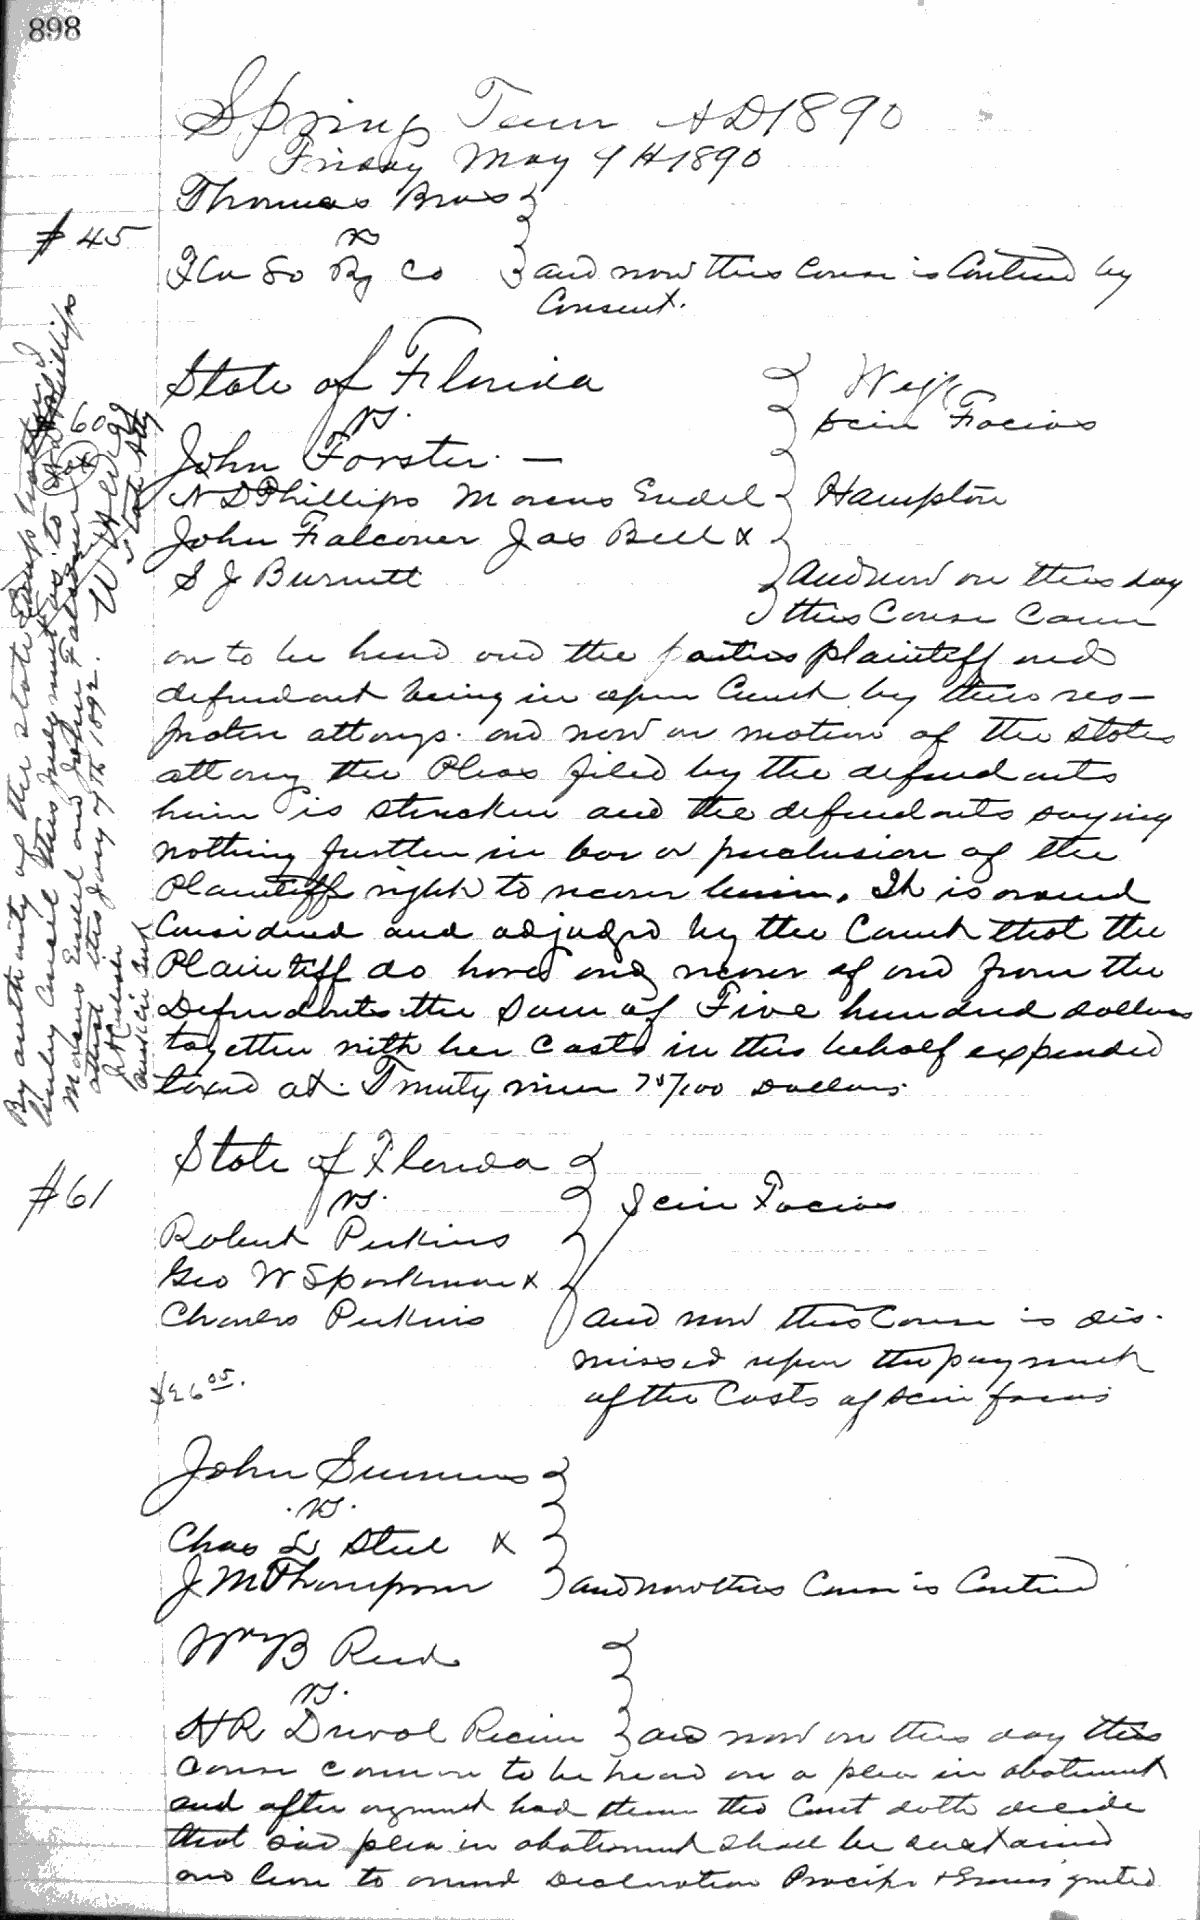 898
Spring Term AD 1890
Friday May 9th 1890
Thomas Bros
#45
vs
Fla So Ry Co and now this Cause is Contined by
Consent.
State of Florida
vs.
Scire Facias
#60
John Forster. —
N D Phillips Morens Endel Hampton
John Falconer Jas Bell &
S J Burnett And now on this day
this Cause Came
on to be heard and the parties plaintiff and
defendant being in open Court by their res-
pective attorys. and now on motion of the States
attorny the Pleas filed by the defendants
herein is stricken and the defendants saying
nothing further in bar or preclusion of the
Plaintiff right to recover herein. It is
Considered and adjudged by the Court that the
Plaintiff do have and recover of and from the
Defendants the Sum of Five hundred dollars
together with her Costs in this behalf expended
taxed at. Twenty nine 75/100 Dollars.
By authority of the State
hereby Cancel this judgment as to N D Phillips
Morens Endel and John Falconer
attest this Jany 7th 1892.
State Atty
State of Florida
#61
vs.
Scire Facias
Robert Perkins
Geo W Sparkman &
Charles Perkins and now this Cause is dis-
missed upon the payment
of the Costs of scire facias
$26 05.
John Summers
.vs.
Chas L Steel &
J M Thompson and now this Cause is Contined
Wm B Reed
vs.
H R Duval Reciver and now on this day this
Cause Came on to be heard on a plea in abatement
and after argument had thereon the Court doth decide
that said plea in abatement shall be sustained
and leave to amend Declaration Precipe & Summons granted